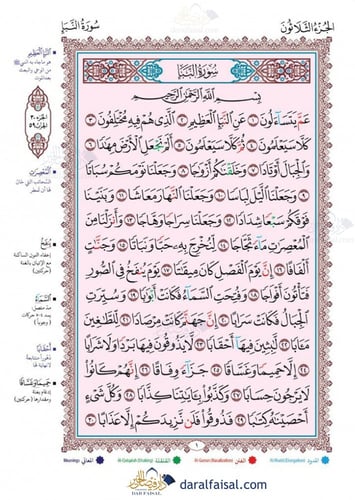 الجزء الثلاثون
سورة النبأ
سورة النبأ
بسم الله الرحمن الرحيم
عم يتساءلون ١ عن النبإ العظيم ٢ الذي هم فيه مختلفون ٣
كلا سيعلمون ٤ ثم كلا سيعلمون ٥ ألم نجعل الأرض مهادا ٦
والجبال أوتادا ٧ وخلقناكم أزواجا ٨ وجعلنا نومكم سباتا
٩ وجعلنا الليل لباسا ١٠ وجعلنا النهار معاشا ١١ وبنينا
فوقكم سبعا شدادا ١٢ وجعلنا سراجا وهاجا ١٣ وأنزلنا من
المعصرات ماء ثجاجا ١٤ لنخرج به حبا ونباتا ١٥ وجنات
ألفافا ١٦ إن يوم الفصل كان ميقاتا ١٧ يوم ينفخ في الصور
فتأتون أفواجا ١٨ وفتحت السماء فكانت أبوابا ١٩ وسيرت
الجبال فكانت سرابا ٢٠ إن جهنم كانت مرصادا ٢١ للطاغين
مآبا ٢٢ لابثين فيها أحقابا ٢٣ لا يذوقون فيها بردا ولا شرابا
٢٤ إلا حميما وغساقا ٢٥ جزاء وفاقا ٢٦ إنهم كانوا
لا يرجون حسابا ٢٧ وكذبوا بآياتنا كذابا ٢٨ وكل شيء
أحصيناه كتابا ٢٩ فذوقوا فلن نزيدكم إلا عذابا ٣٠
١
الجزء ٣٠
الحزب ٥٩
النبإ العظيم
المعصرات
السماء
أحقابا
حميما وغساقا
المدود
الغنن
القلقلة
المعاني
DAR FAISAL
daralfaisal.com